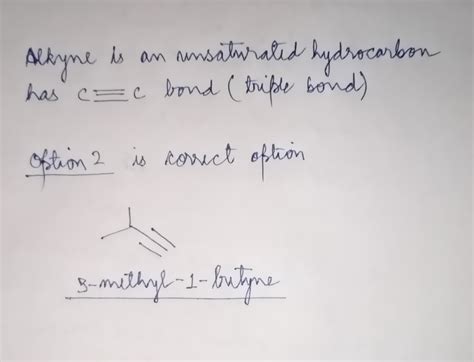 Alkyne is an unsaturated hydrocarbon
has C≡C bond (triple bond)
Option 2 is correct option
3-methyl-1-butyne